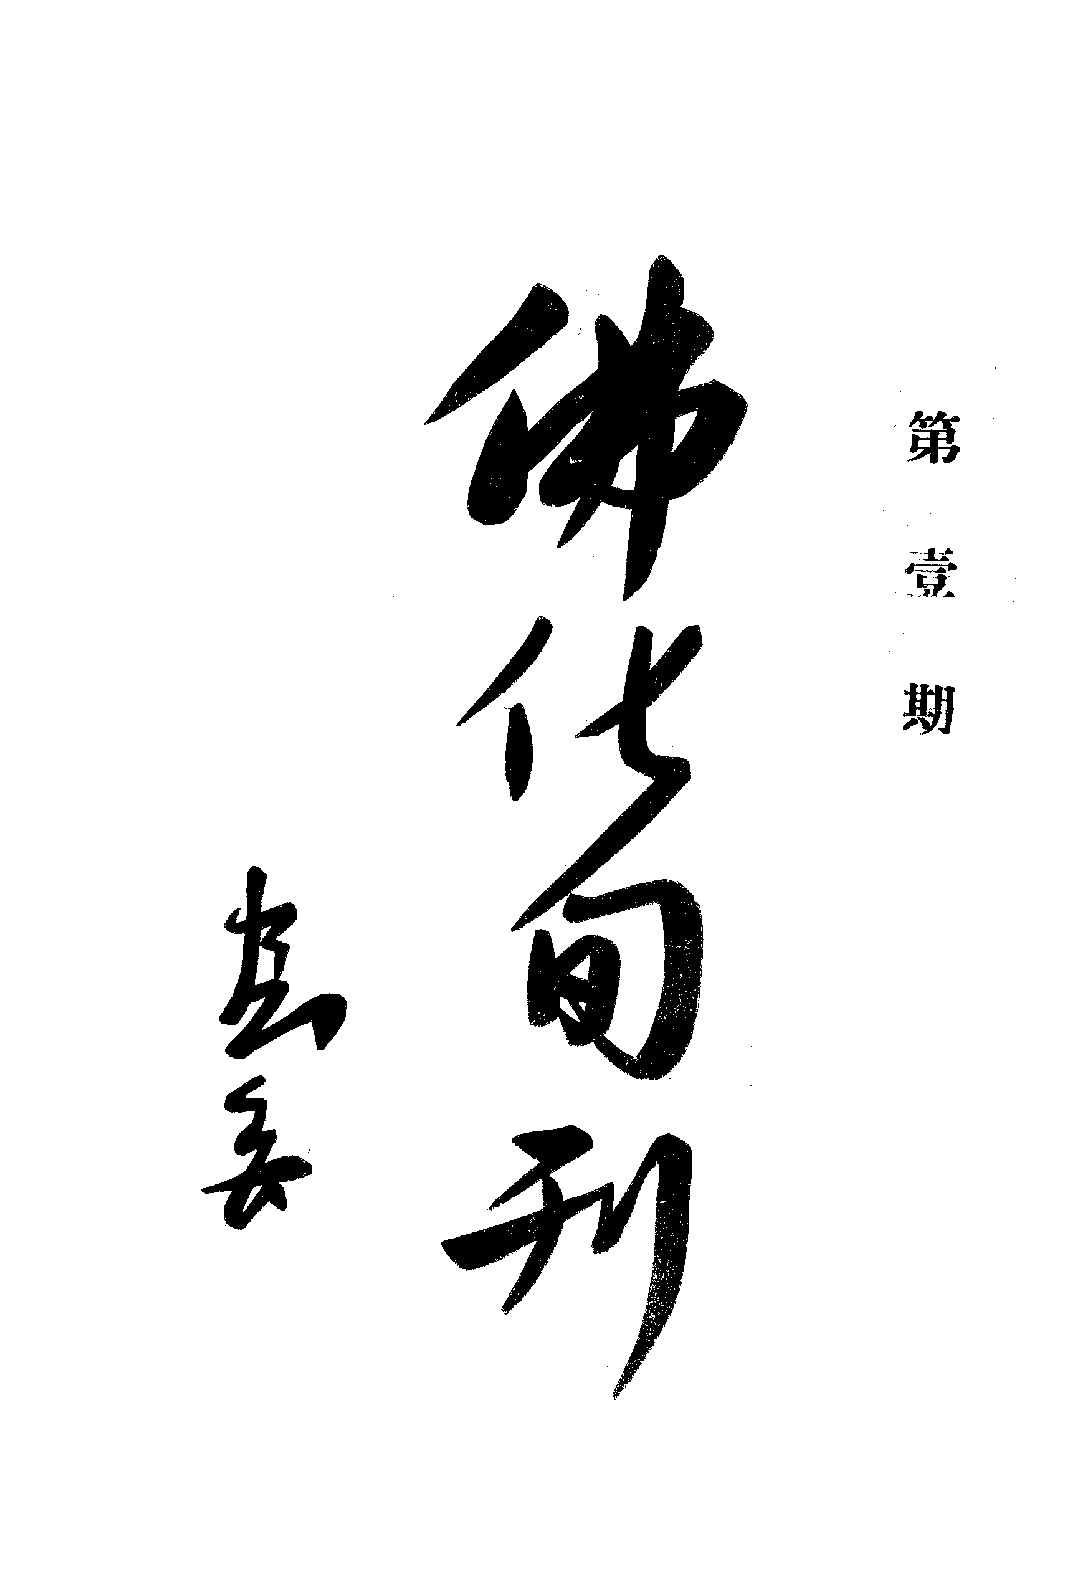 第壹期
佛化旬刊